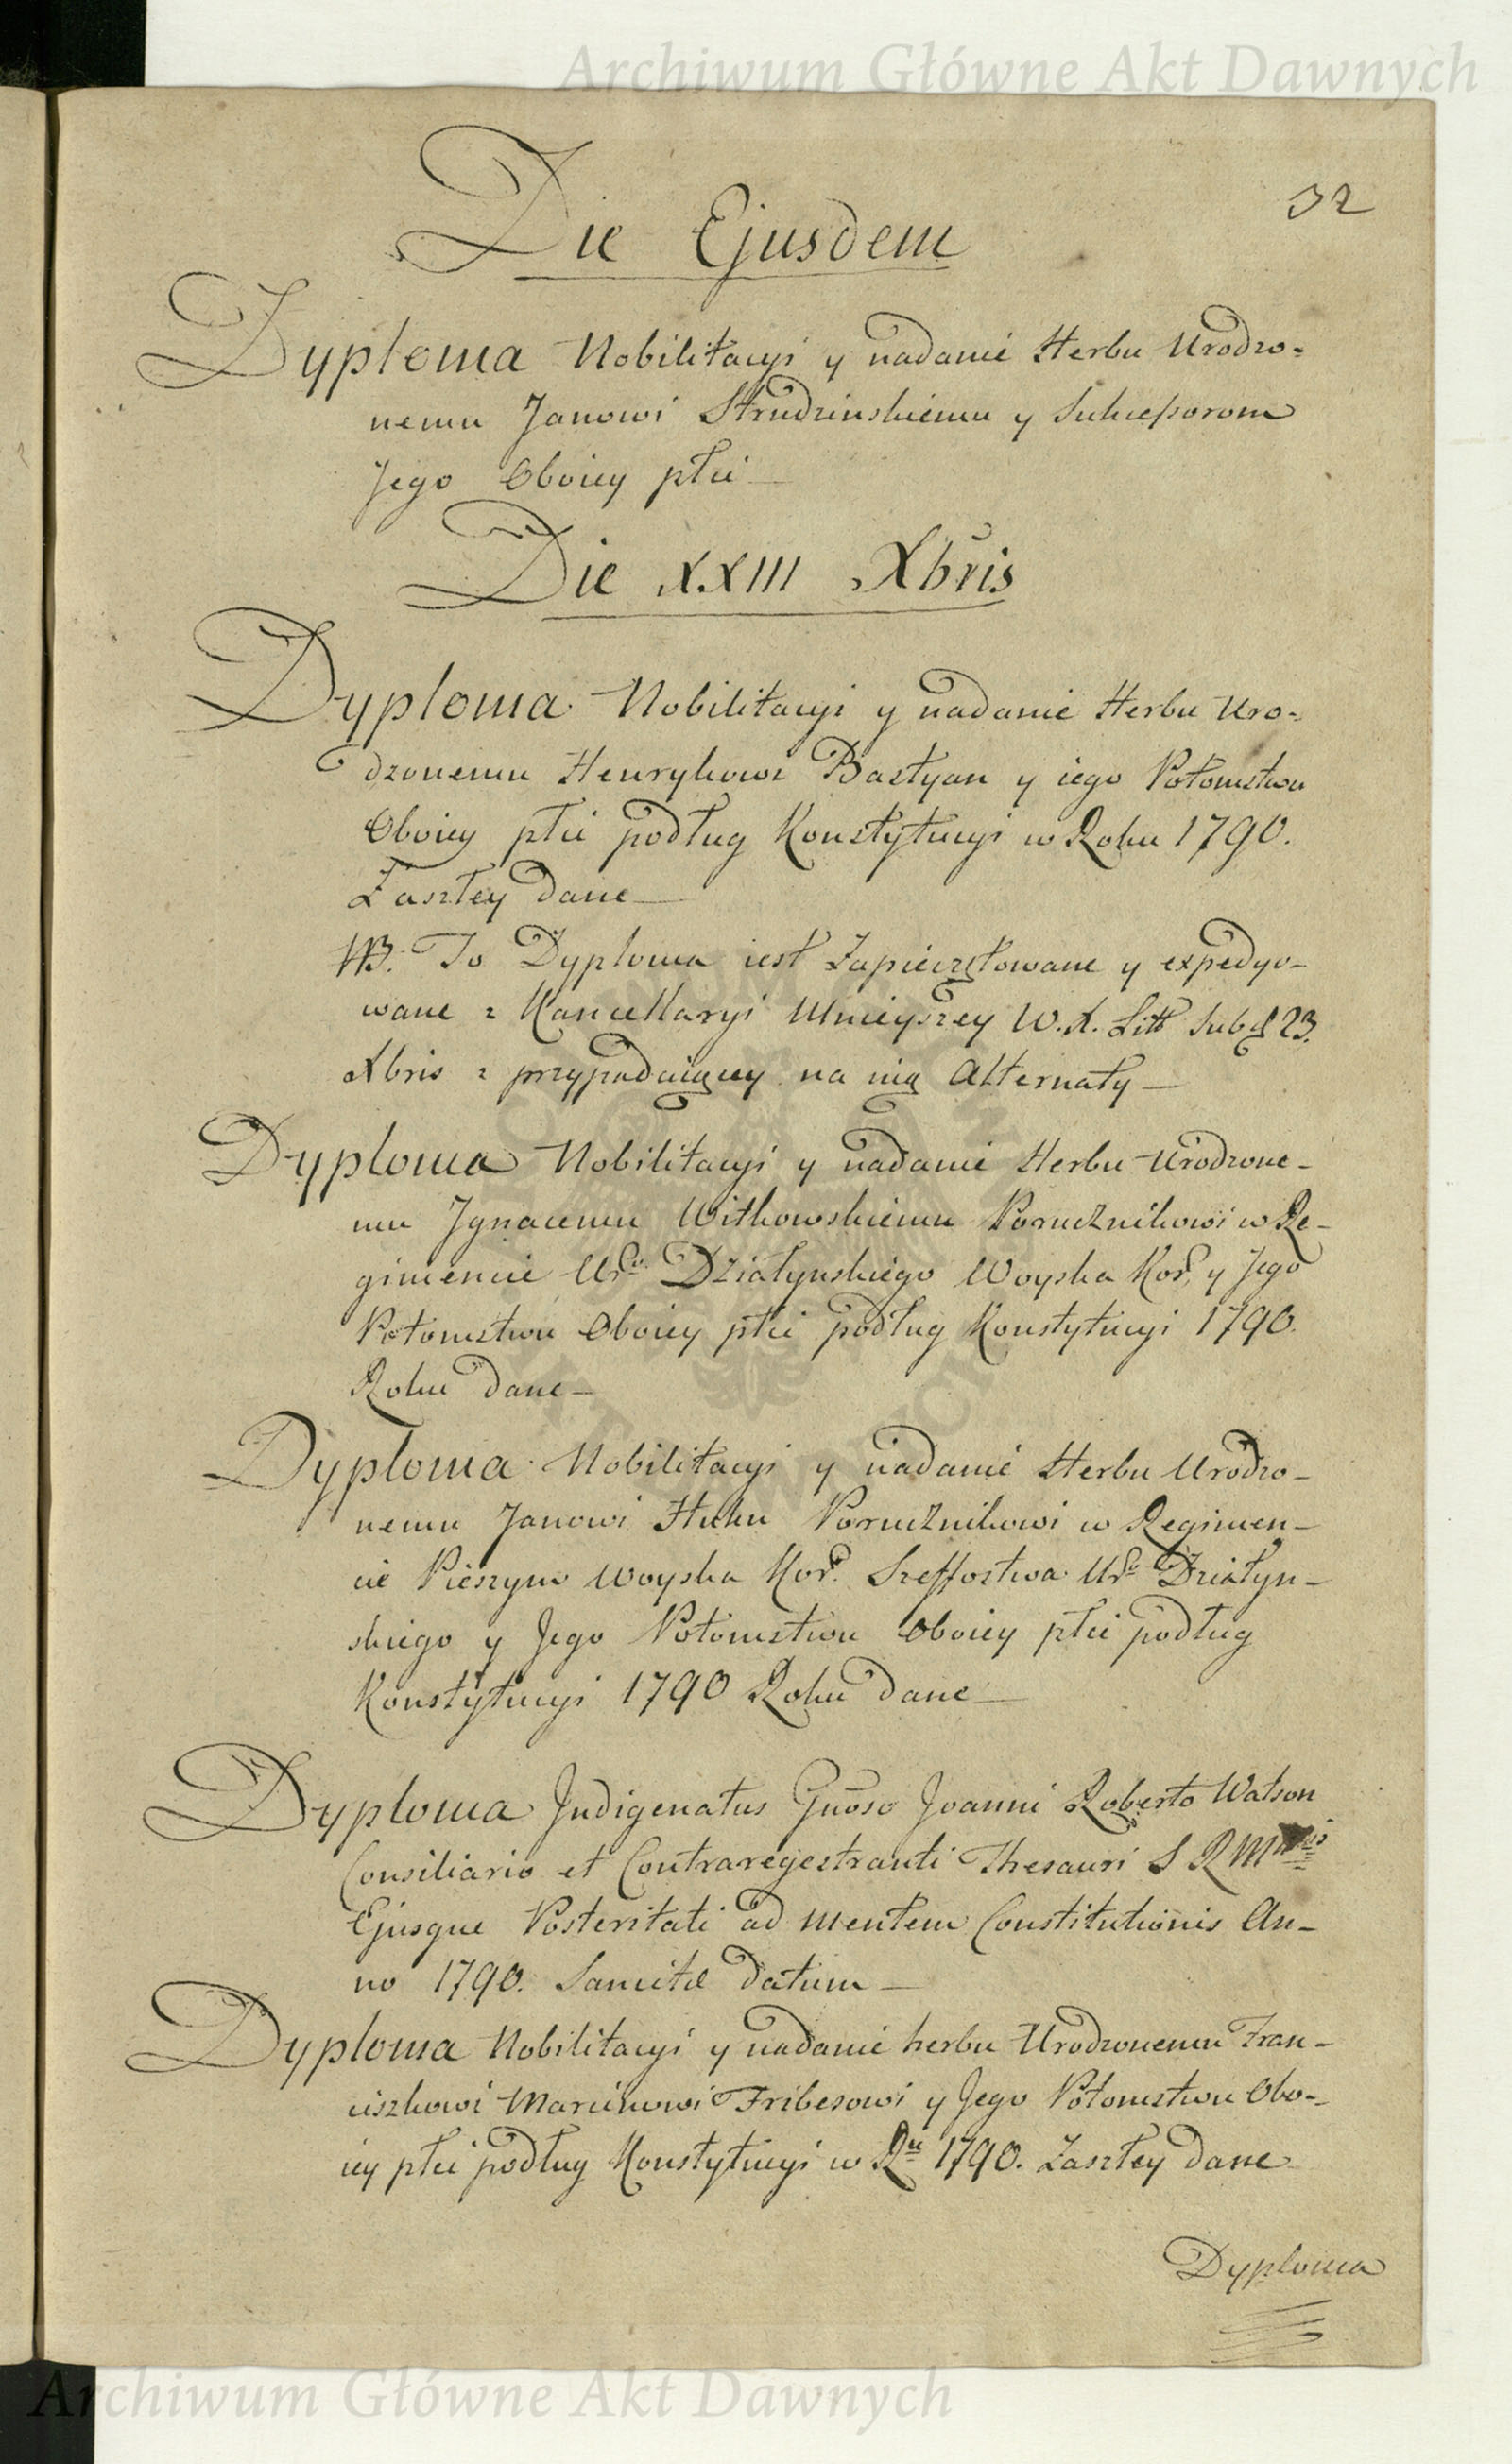 Archiwum Główne Akt Dawnych
32
Die Ejusdem
Dyploma Nobilitacyi y nadanie Herbu Urodzo=
nemu Janowi Strudzinskiemu y Sukcessorom
Jego Oboiey płci
Die XXIII Xbris
Dyploma Nobilitacyi y nadanie Herbu Uro=
dzonemu Henrykowi Bastyan y iego Potomstwu
Oboiey płci podług Konstytucyi w Roku 1790.
Zaszłey dane
NB. To Dyploma iest Zapieczętowane y expedyo-
wane z Kancellaryi Mnieyszey W. X. Litt Sub d 23.
Xbris z przypadaiącey na nią Alternaty
Dyploma Nobilitacyi y nadanie Herbu Urodzone-
mu Jgnacemu Witkowskiemu Porucznikowi w Re-
gimencie Urgo Działynskiego Woyska Kor. y Jego
Potomstwu Oboiey płci podług Konstytucyi 1790.
Roku dane
Dyploma Nobilitacyi y nadanie Herbu Urodzo-
nemu Janowi Huhn Porucznikowi w Regimen-
cie Pieszym Woyska Kor. Szeffostwa Urgo Działyn-
skiego y Jego Potomstwu Oboiey płci podług
Konstytucyi 1790 Roku dane
Dyploma Jndigenatus Gnoso Joanni Roberto Watson
Consiliario et Contraregestranti Thesauri S R Mttis
Ejusque Posteritati ad mentem Constitutionis An-
no 1790. Sancitae datum
Dyploma Nobilitacyi y nadanie herbu Urodzonemu Fran-
ciszkowi Marcinowi Fribesowi y Jego Potomstwu Obo-
iey płci podług Konstytucyi w Rku 1790. Zaszłey dane
Dyploma
Archiwum Główne Akt Dawnych